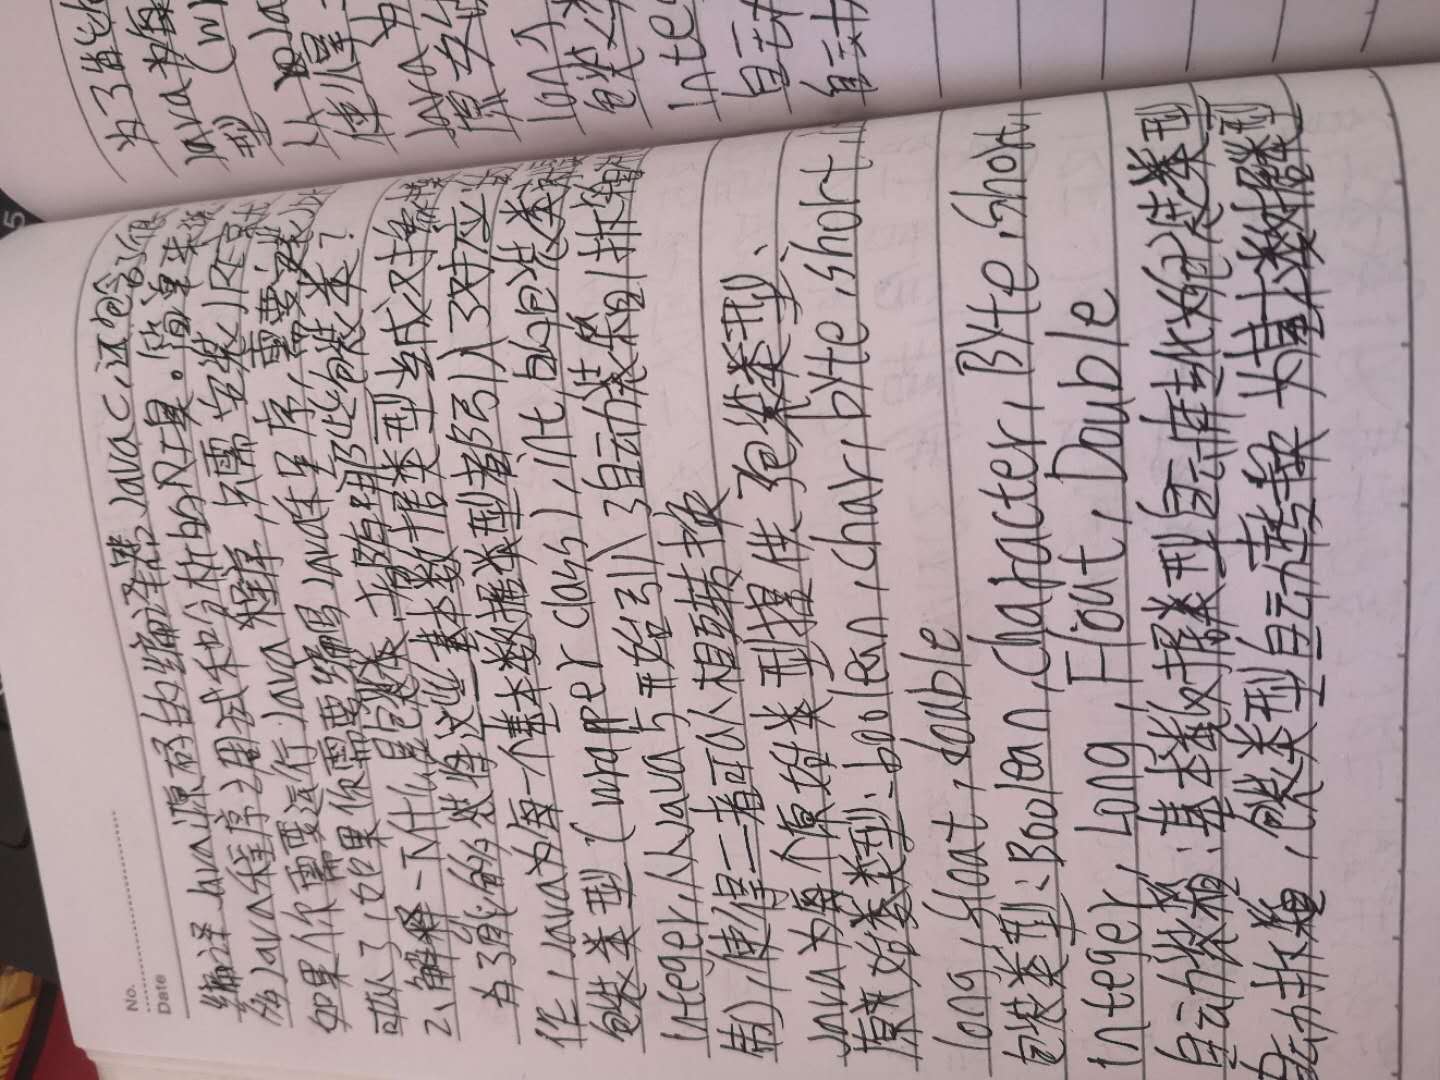 No.
Date
编译Java源码的编译器Javac,还包含
给Java程序调试和分析的工具。简单来
如果你需要运行Java程序,只需安装JRE
可以了,如果你需要编写Java程序,需要
2、解释一下什么是包装类,有哪些包装类?
为了能够将这些基本数据类型当成对象
作,Java为每一个基本数据类型都引入了对应
包装类型(wrapper class),int的包装类
Integer,从Java 5开始引入了自动装箱/拆箱
制,使得二者可以相互转换
Java为每个原始类型提供了包装类型、
原始类型:boolean,char,byte,short,
long,float,double
包装类型:Boolean,Character,Byte,Short,
Integer,Long,Float,Double
自动装箱:基本数据类型自动转化为包装类型
自动拆箱,包装类型自动转换为基本数据类型
为了
Java为每
型(w
从Ja
使得
Java为
原始
lon
包装
Inte
自动
自动